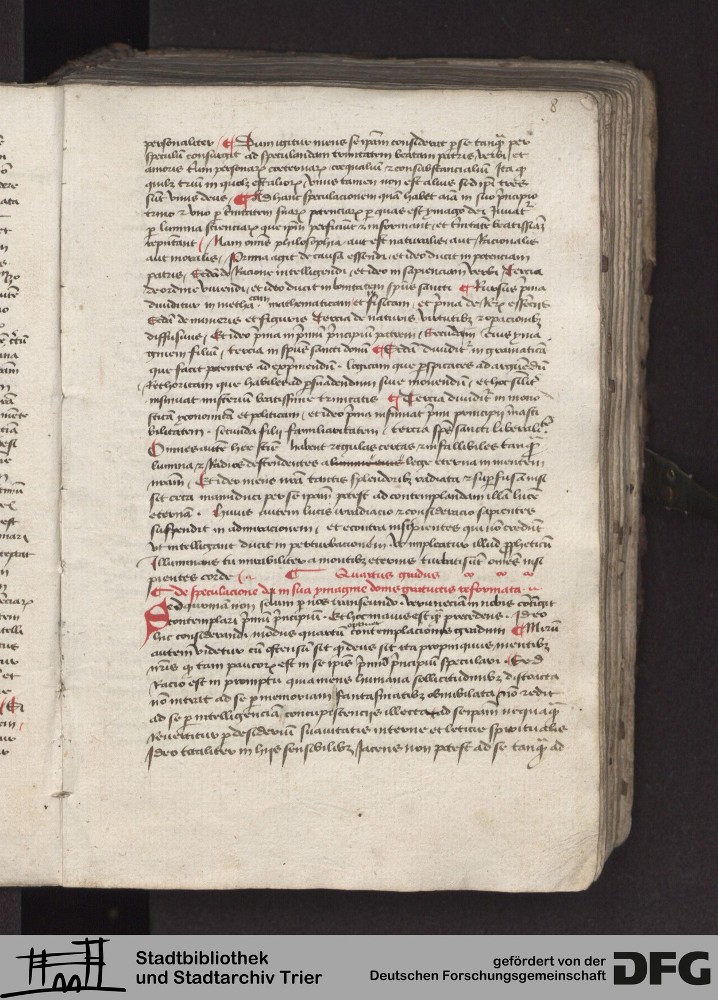 8
personaliter ¶ Dum igitur mens se ipam considerat p se tanq̄ per
speculū consurgit ad speculandam trinitatem beatam patris verbi et
amoris triū personaꝝ coeternaꝝ coequaliū ⁊ consubstancialiū Ita q
quilꝫ triū in quolꝫ est alioꝝ vnus tamen non est alius sed ipi tres
sūt vnus deus ¶ Ad hanc speculacionem quā habet aīa in suo pncipio
trino ⁊ vno p trinitatem suaꝝ potenciaꝝ p quas est ymago dei Iuuat̄
p lumina scienciaꝝ que ipm perficiūt ⁊ informant et trinitatē beatissiam
repntant Nam omis philosophia aut est naturalis aut Racionalis
aut moralis Prima agit de causa essendi et ideo ducit in potenciam
patris Secūda de Racione intelligendi et ideo in sapienciam verbi Tercia
de ordine viuendi et ideo ducit in bonitatem spūs sancti ¶ Rursus pma
diuiditur in metha cam mathematicam et fisicam et pma de Reꝝ essencijs
Secūda de numeris et figuris Tercia de naturis virtutibꝫ ⁊ opacionibꝫ
diffusiuis Et ideo pma in pmū pncipium patrem Secunda in eius yma
ginem filiū tercia in spūs sancti donū ¶ Secūda diuidit̄ in gramaticā
que facit potentes ad exprimendū logicam que pspicaces ad arguendū
Rethoricam que habiles ad psuadendum siue mouendū et hoc silit̄
insinuat misteriū beatissime trinitatis ¶ Tercia diuidit̄ in mono
sticā yconomicā et politicam et ideo pma insinuat pmi principij inasci
bilitatem secunda filij familiaritatem tercia spūs sancti liberalitē
Omnes autē hee sciē habent regulas certas ⁊ infallibiles tanq̄
lumina ⁊ Radios descendentes a lege eterna in mentem
nrām Et ideo mens nrā tantis splendoribꝫ radiata ⁊ supfusa nisi
sit ceca manuduci per se ipam potest ad contemplandam illā lucē
eternā Huius autem lucis irradiacio ⁊ consideracio sapientes
suspendit in admiracionem et econtra insipientes qui non credūt
vt intelligant ducit in perturbacionem vt impleatur illud ppheticū
Illuminans tu mirabiliter a montibꝫ eternis turbati sūt omēs insi
pientes corde ¶ Quartus gradus
¶ de speculacione dei in sua ymagine donis gratuitis reformata
Sed quoniam non solum p nos transeundo verum eciā in nobis cōtigit
contemplari pmū pncipium Et hoc maius est q̄ precedens Ideo
hic considerandi modus quartū contemplacionis gradum ¶ Mirū
autem videtur cū ostensū sit q deus sit ita propinquus mentibꝫ
nris q tam paucoꝝ est in se ipis pmū pncipiū speculari Sed
Racio est in promptu quia mens humana sollicitudinibꝫ distracta
nō intrat ad se p memoriam fantasmatibꝫ obnubilata nō redit
ad se p intelligenciā concupiscencijs illecta ad se ipam nequaq̄
reuertitur p desideriū suauitatis interne et leticie spiritualis
Ideo totaliter in hijs sensibilibꝫ Iacens non potest ad se tanq̄ ad
Stadtbibliothek
und Stadtarchiv Trier
gefördert von der
Deutschen Forschungsgemeinschaft
DFG